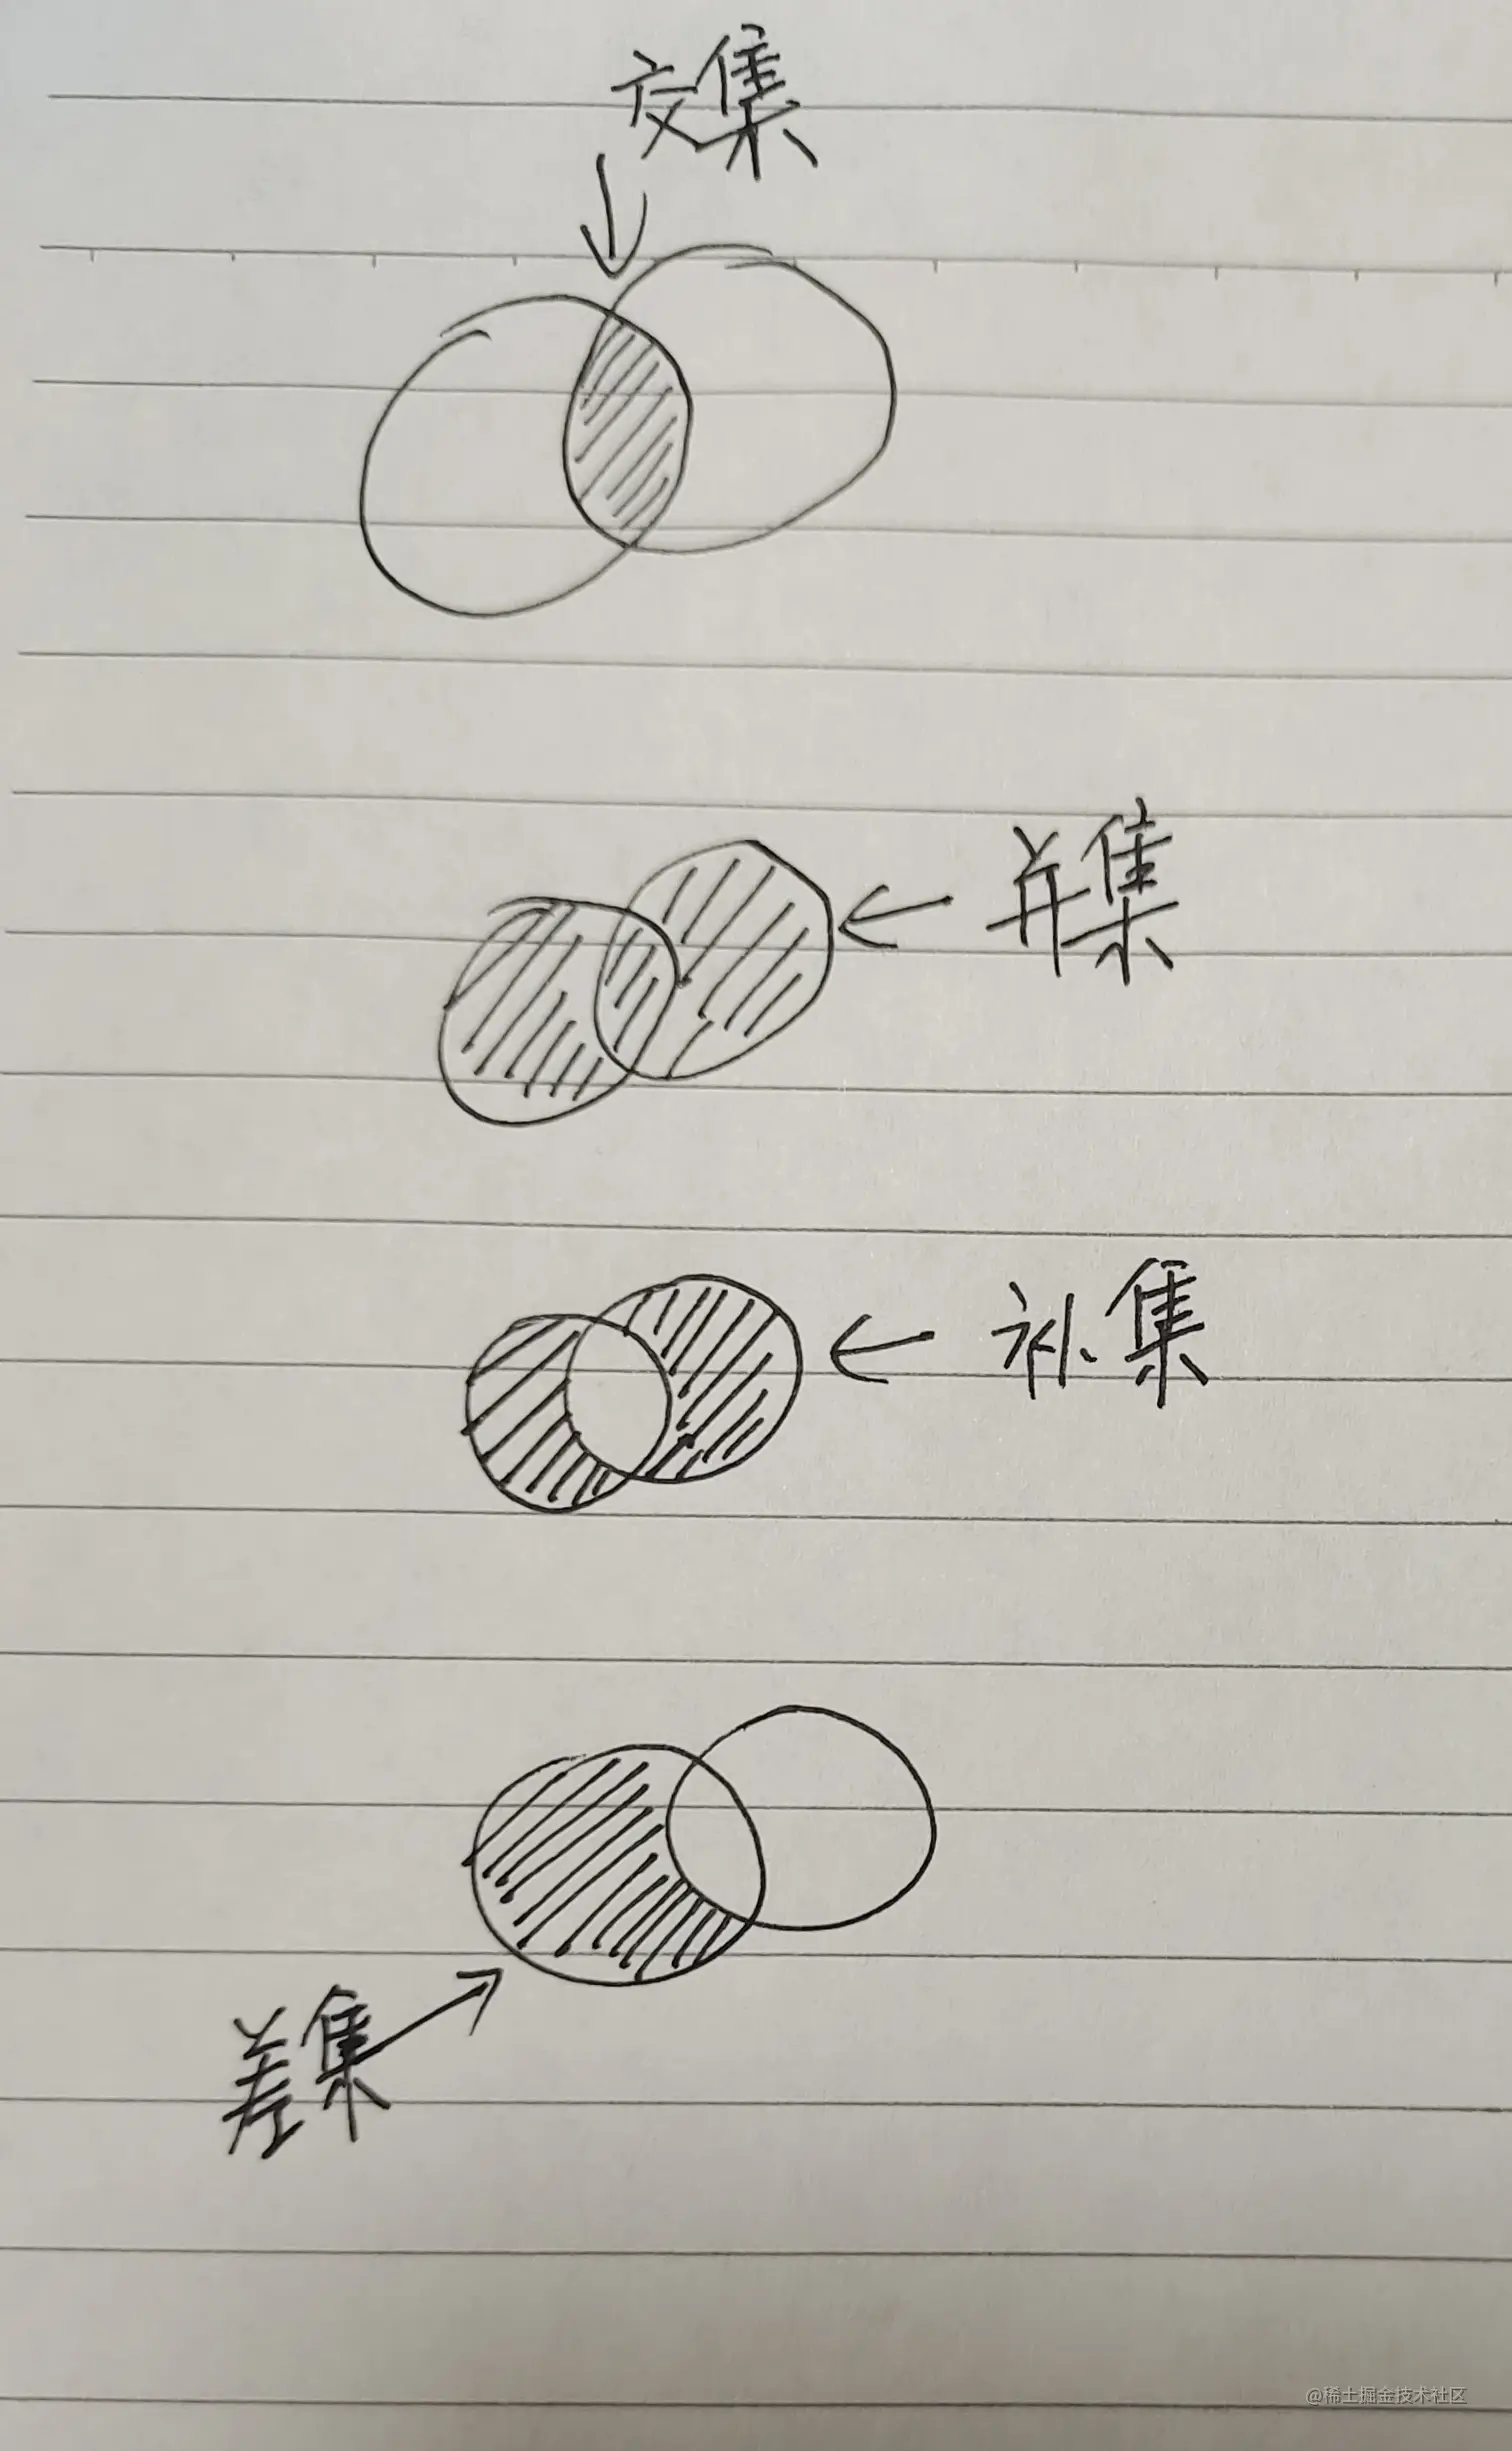 交集
并集
补集
差集
@稀土掘金技术社区